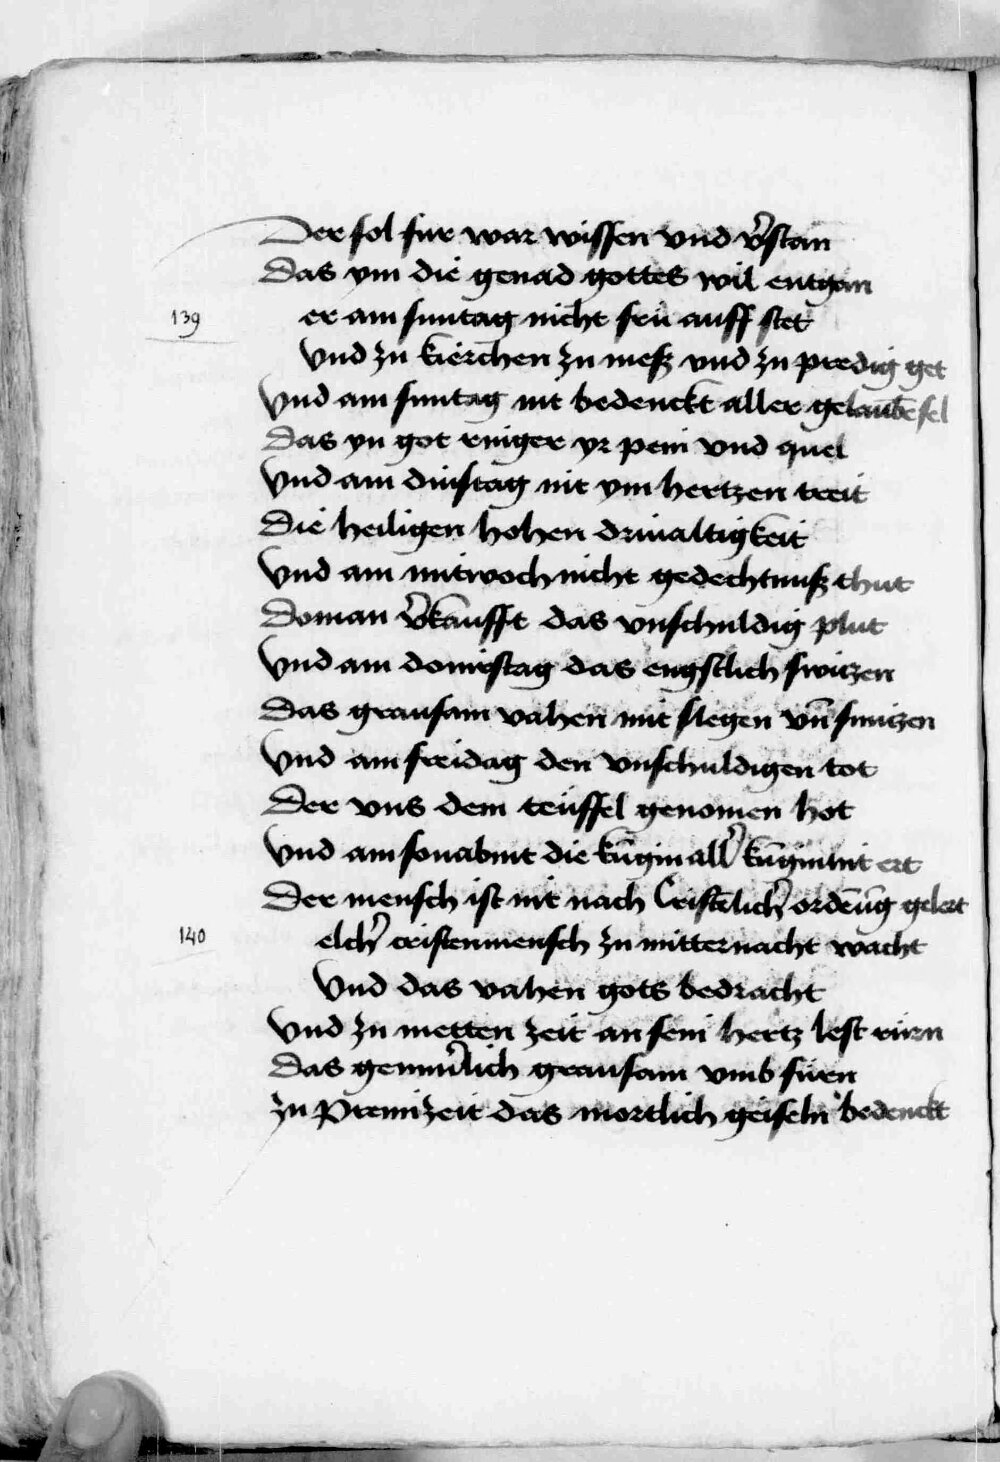 Der sol fur war wissen vnd v̾stan
Das ym die genad gottes wil entgan
139
er am suntag nicht fru auff stet
Vnd zu kierchen zu meß vnd zu predig get
Vnd am suntag nit bedenckt aller gelaub̄ sel
Das yn got ringer yr pein vnd quel
Vnd am dinstag nit ym hertzen treit
Die heiligen hohen drivaltigkeit
Vnd am mitwoch nicht gedechtnuß thut
Do man v̾kaufft das vnschuldig plut
Vnd am donrstag das engstlich switzen
Das grausam vahen mit slegen vn̄ smitzen
Vnd am freidag den vnschuldigen tot
Der vns dem teuffel genomen hot
Vnd am sonabnt die kūgin all̾ kūgin nit ert
Der mensch ist nit nach Cristēlich̾ ordēūg gelert
140
elch̾ cristenmensch zu mitternacht wacht
Vnd das vahen gots bedracht
Vnd zu metten zeit an sein hertz lest rürn
Das grausam vmb füren
zu Premzeit das mortlich geiseln bedenckt